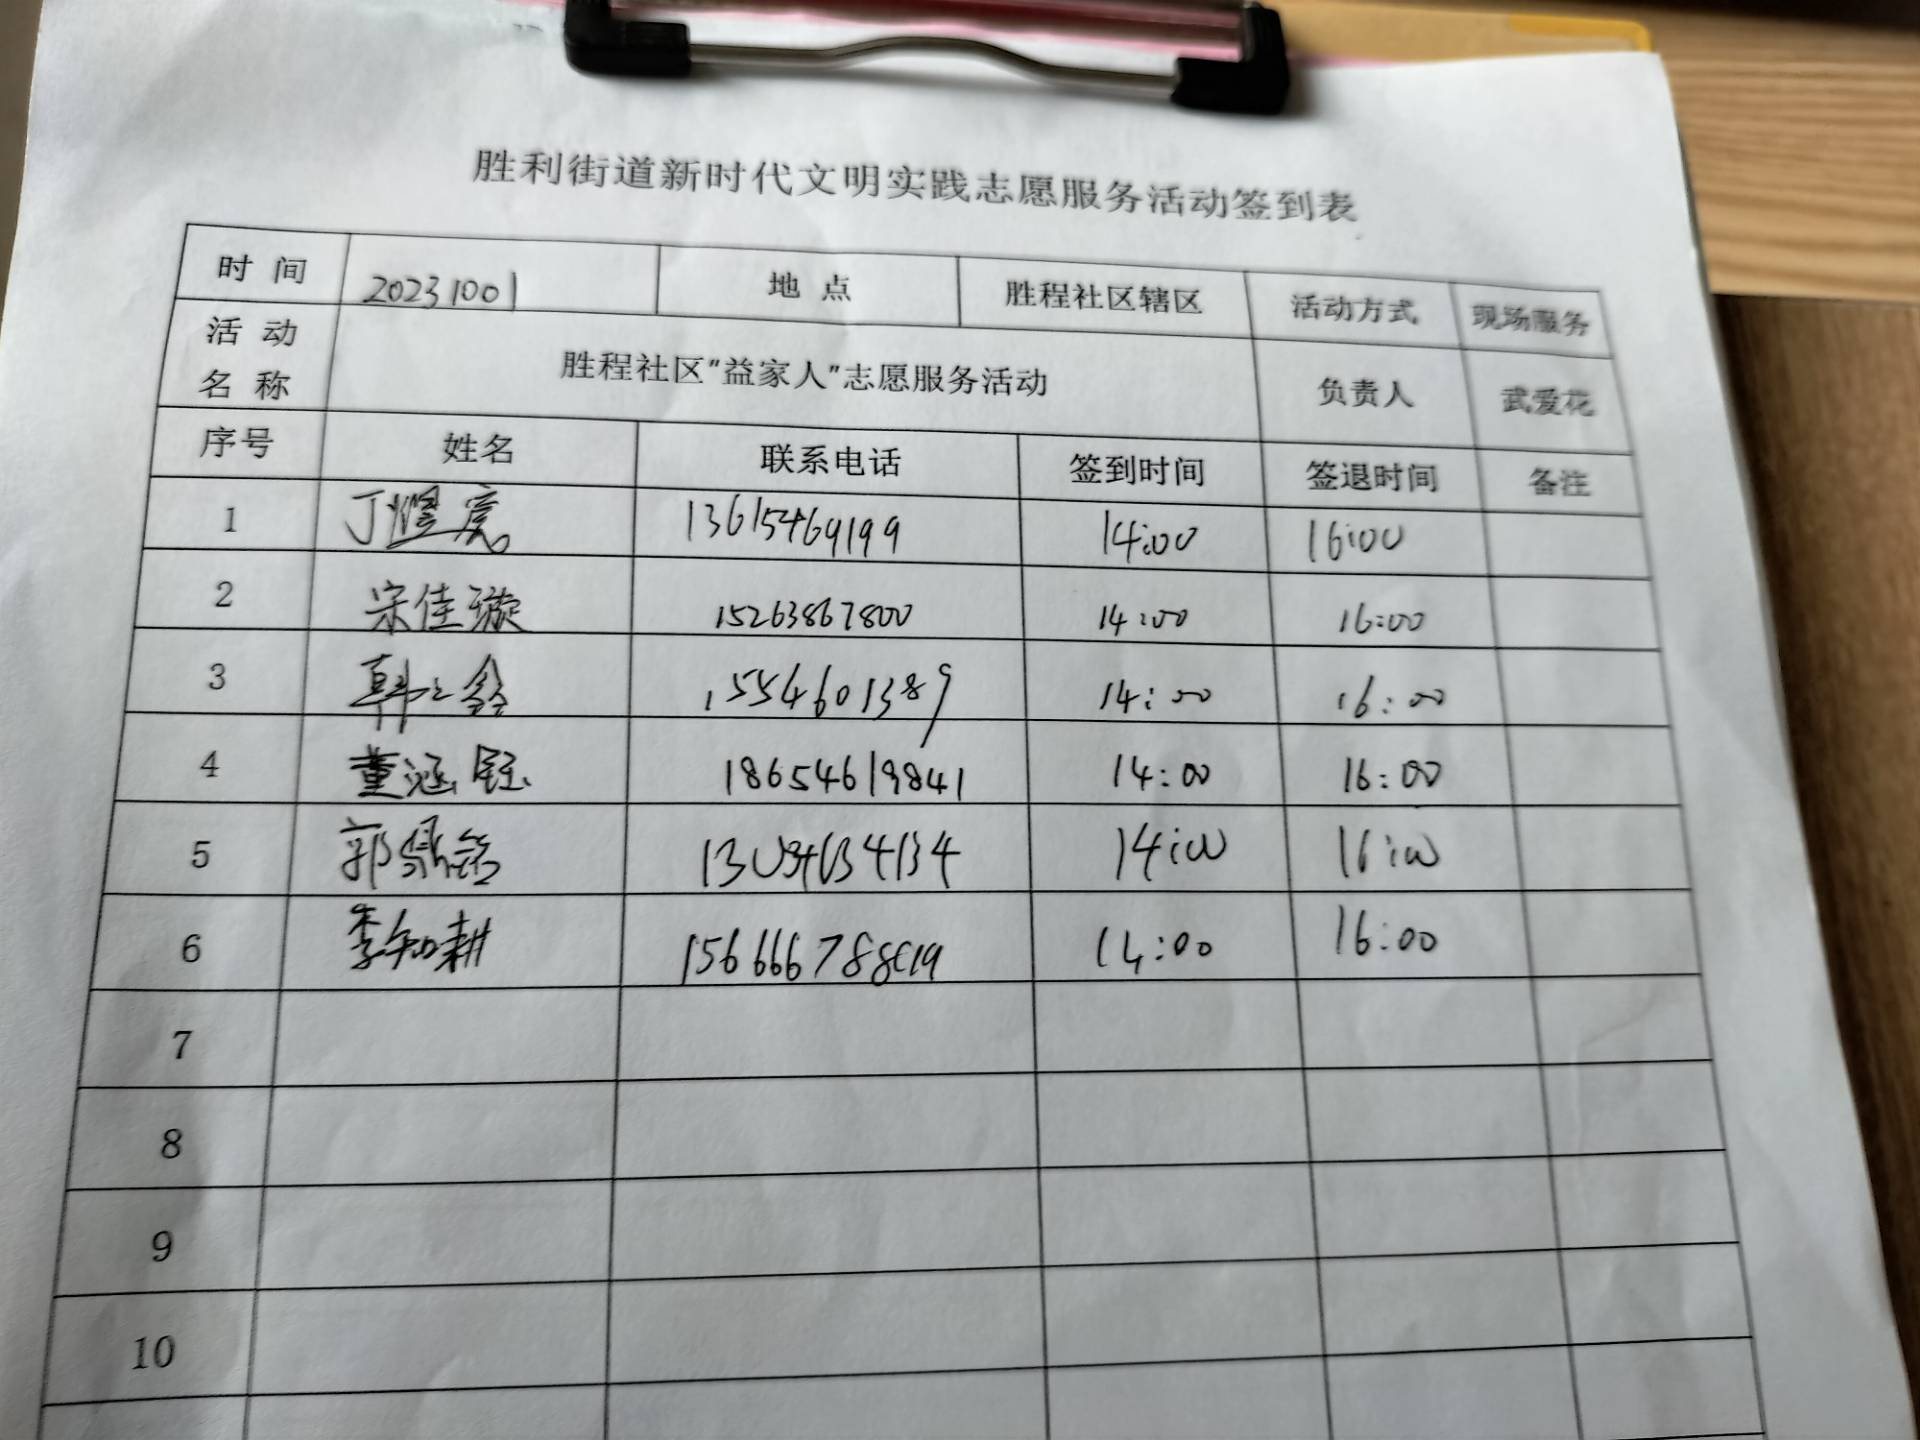 胜利街道新时代文明实践志愿服务活动签到表
时 间 20231001 地 点 胜程社区辖区 活动方式 现场服务
活 动 名 称 胜程社区"益家人"志愿服务活动 负责人 武爱花
序号 姓名 联系电话 签到时间 签退时间 备注
1 13615469199 14:00 16:00
2 宋佳璇 15263867800 14:00 16:00
3 韩之鑫 1554601389 14:00 16:00
4 董涵钰 18654619841 14:00 16:00
5 郭鼎铭 14:00 16:00
6 李知耕 14:00 16:00
7
8
9
10